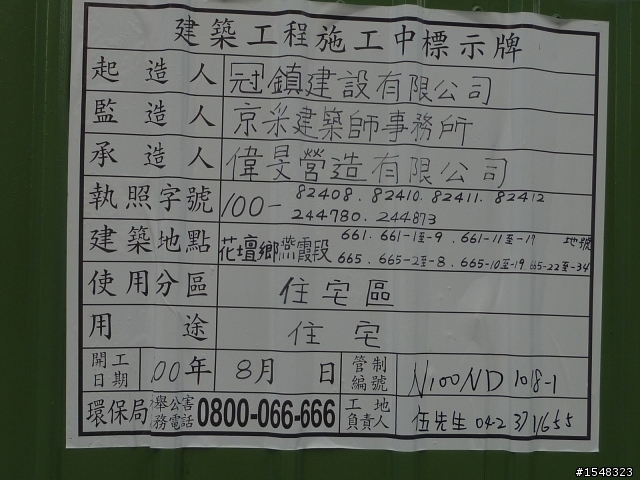 建築工程施工中標示牌
起造人 冠鎮建設有限公司
監造人 京采建築師事務所
承造人 偉旻營造有限公司
執照字號 100- 82408. 82410. 82411. 82412
244780. 244873
建築地點 花壇鄉燕霞段 661. 661-1至-9. 661-11至-19 地號
665. 665-2至-8. 665-10至-19 665-22至-34
使用分區 住宅區
用途 住宅
開工日期 100年 8月 日 管制編號 N100ND1018-1
環保局 舉公害務電話 0800-066-666 工地負責人 伍先生 04-2
#1548323